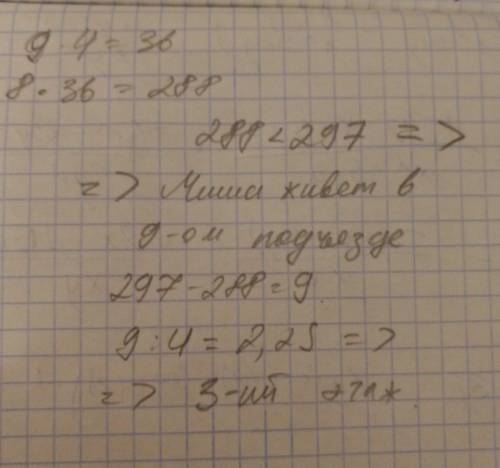 9 · 4 = 36
8 · 36 = 288
288 < 297 =>
=> Миша живет в
9-ом подъезде
297 - 288 = 9
9 : 4 = 2,25 =>
=> 3-ий этаж